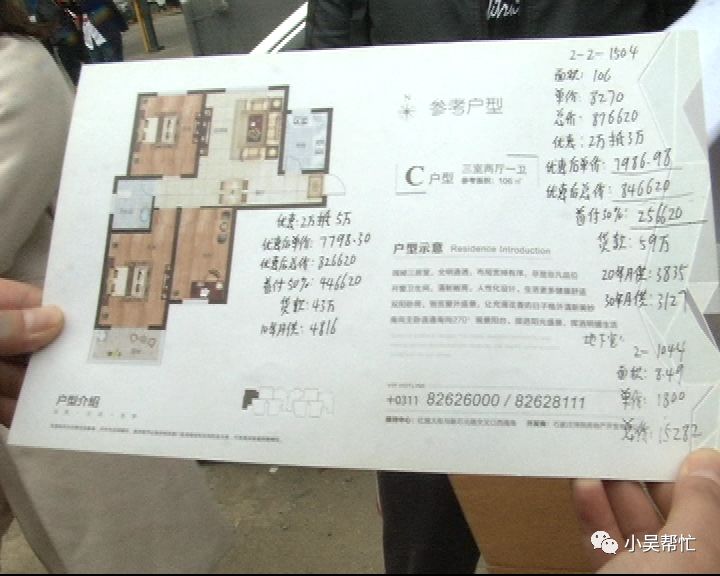 2-2-1504
面积：106
单价：8270
总价：876620
优惠：2万抵3万
优惠后单价：7986.98
优惠后总价：846620
首付30%：256620
贷款：59万
20年月供：3835
30年月供：3127
地下室：
2-1044
面积：8.49
单价：1800
总价：15282
N
参考户型
C户型 三室两厅一卫
参考面积：106㎡
优惠：2万抵5万
优惠后单价：7798.30
优惠后总价：826620
首付50%：446620
贷款：43万
10年月供：4816
户型示意 Residence Introduction
户型介绍
VIP HOTLINE
+0311 82626000 / 82628111
小吴帮忙